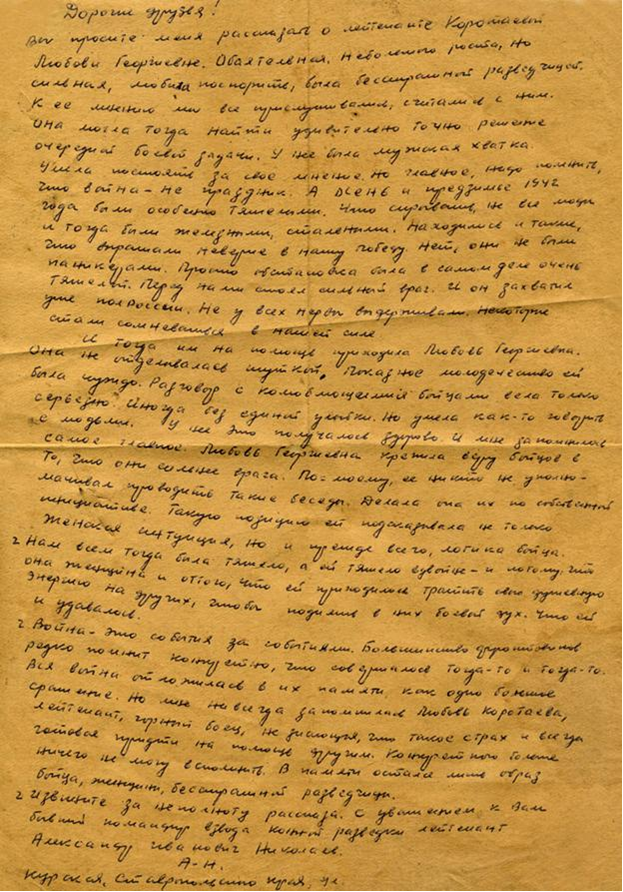 Дорогие друзья!
Вы просите меня рассказать о лейтенанте Коротаевой
Любови Георгиевне. Обаятельная. Небольшого роста, но
сильная, любила поспорить, была бесстрашной разведчицей.
К ее мнению мы все прислушивались, считались с ним.
Она могла тогда найти удивительно точно решение
очередной боевой задачи. У нее была мужская хватка.
Умела постоять за свое мнение. Но главное, надо помнить,
что война - не праздник. А осень и предзимье 1942
года были особенно тяжелыми. Что скрывать, не все люди
и тогда были железными, стальными. Находились и такие,
что выражали неверие в нашу победу. Нет, они не были
паникерами. Просто обстановка была в самом деле очень
тяжелой. Перед нами стоял сильный враг. И он захватил
уже полРоссии. Не у всех нервы выдерживали. Некоторые
стали сомневаться в нашей силе
И тогда им на помощь приходила Любовь Георгиевна.
Она не отделывалась шуткой. Показное молодечество ей
было чуждо. Разговор с колеблющимися бойцами вела только
серьезно. Иногда без единой улыбки. Но умела как-то говорить
с людьми. У нее это получалось здорово. И мне запомнилось
самое главное. Любовь Георгиевна крепила веру бойцов в
то, что они сильнее врага. По-моему, ее никто не уполно-
мачивал проводить такие беседы. Делала она их по собственной
инициативе. Такую позицию ей подсказывала не только
женская интуиция, но и прежде всего, логика бойца.
Нам всем тогда было тяжело, а ей тяжело вдвойне - и потому, что
она женщина и оттого, что ей приходилось тратить свою душевную
энергию на других, чтобы поднимать в них боевой дух. Что ей
и удавалось.
Война - это события за событиями. Большинство фронтовиков
редко помнит конкретно, что совершалось тогда-то и тогда-то.
Вся война отложилась в их памяти, как одно большое
сражение. Но мне навсегда запомнилась Любовь Коротаева,
лейтенант, горный боец, не знающая, что такое страх и всегда
готовая придти на помощь другим. Конкретного больше
ничего не могу вспомнить. В памяти остался лишь образ
бойца, женщины, бесстрашной разведчицы.
Извините за неполноту рассказа. С уважением к Вам
бывший командир взвода конной разведки лейтенант
Александр Иванович Николаев.
А-Н.
Курская, Ставропольского края, ул.